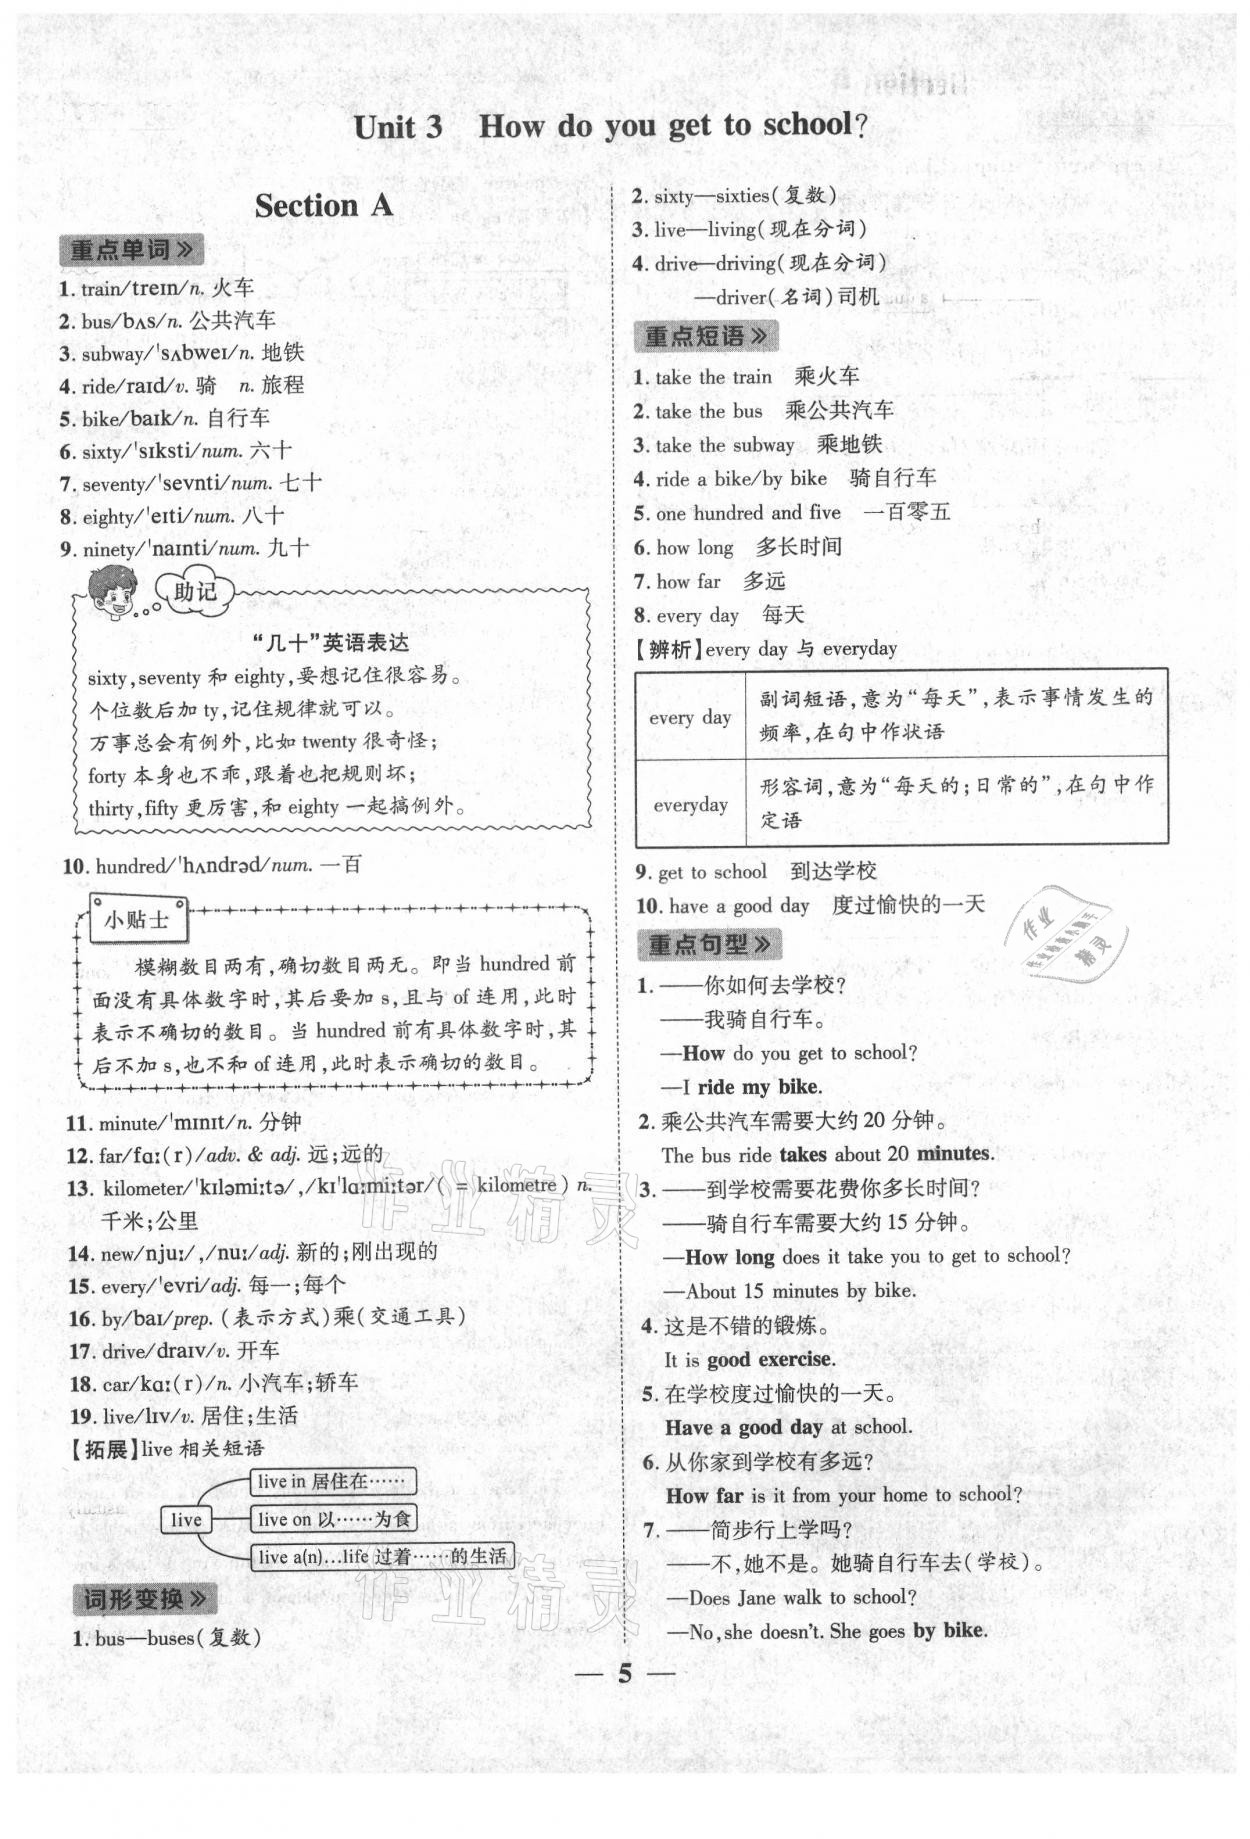 Unit 3 How do you get to school?
Section A
重点单词
1. train/treɪn/n. 火车
2. bus/bʌs/n. 公共汽车
3. subway/'sʌbweɪ/n. 地铁
4. ride/raɪd/v. 骑 n. 旅程
5. bike/baɪk/n. 自行车
6. sixty/'sɪksti/num. 六十
7. seventy/'sevnti/num. 七十
8. eighty/'eɪti/num. 八十
9. ninety/'naɪnti/num. 九十
助记
“几十”英语表达
sixty,seventy 和 eighty,要想记住很容易。
个位数后加 ty,记住规律就可以。
万事总会有例外,比如 twenty 很奇怪;
forty 本身也不乖,跟着也把规则坏;
thirty,fifty 更厉害,和 eighty 一起搞例外。
10. hundred/'hʌndrəd/num. 一百
小贴士
模糊数目两有,确切数目两无。即当 hundred 前
面没有具体数字时,其后要加 s,且与 of 连用,此时
表示不确切的数目。当 hundred 前有具体数字时,其
后不加 s,也不和 of 连用,此时表示确切的数目。
11. minute/'mɪnɪt/n. 分钟
12. far/fɑː(r)/adv. & adj. 远;远的
13. kilometer/'kɪləmiːtə/,/kɪ'lɑːmiːtər/( = kilometre) n.
千米;公里
14. new/njuː/,/nuː/adj. 新的;刚出现的
15. every/'evri/adj. 每一;每个
16. by/baɪ/prep. (表示方式)乘(交通工具)
17. drive/draɪv/v. 开车
18. car/kɑː(r)/n. 小汽车;轿车
19. live/lɪv/v. 居住;生活
【拓展】live 相关短语
live
live in 居住在……
live on 以……为食
live a(n)...life 过着……的生活
词形变换
1. bus—buses(复数)
2. sixty—sixties(复数)
3. live—living(现在分词)
4. drive—driving(现在分词)
—driver(名词)司机
重点短语
1. take the train 乘火车
2. take the bus 乘公共汽车
3. take the subway 乘地铁
4. ride a bike/by bike 骑自行车
5. one hundred and five 一百零五
6. how long 多长时间
7. how far 多远
8. every day 每天
【辨析】every day 与 everyday
every day 副词短语,意为“每天”,表示事情发生的
频率,在句中作状语
everyday 形容词,意为“每天的;日常的”,在句中作
定语
9. get to school 到达学校
10. have a good day 度过愉快的一天
重点句型
1. ——你如何去学校?
——我骑自行车。
—How do you get to school?
—I ride my bike.
2. 乘公共汽车需要大约 20 分钟。
The bus ride takes about 20 minutes.
3. ——到学校需要花费你多长时间?
——骑自行车需要大约 15 分钟。
—How long does it take you to get to school?
—About 15 minutes by bike.
4. 这是不错的锻炼。
It is good exercise.
5. 在学校度过愉快的一天。
Have a good day at school.
6. 从你家到学校有多远?
How far is it from your home to school?
7. ——简步行上学吗?
——不,她不是。她骑自行车去(学校)。
—Does Jane walk to school?
—No,she doesn't. She goes by bike.
— 5 —
作业精灵
作业精灵
作业
精灵